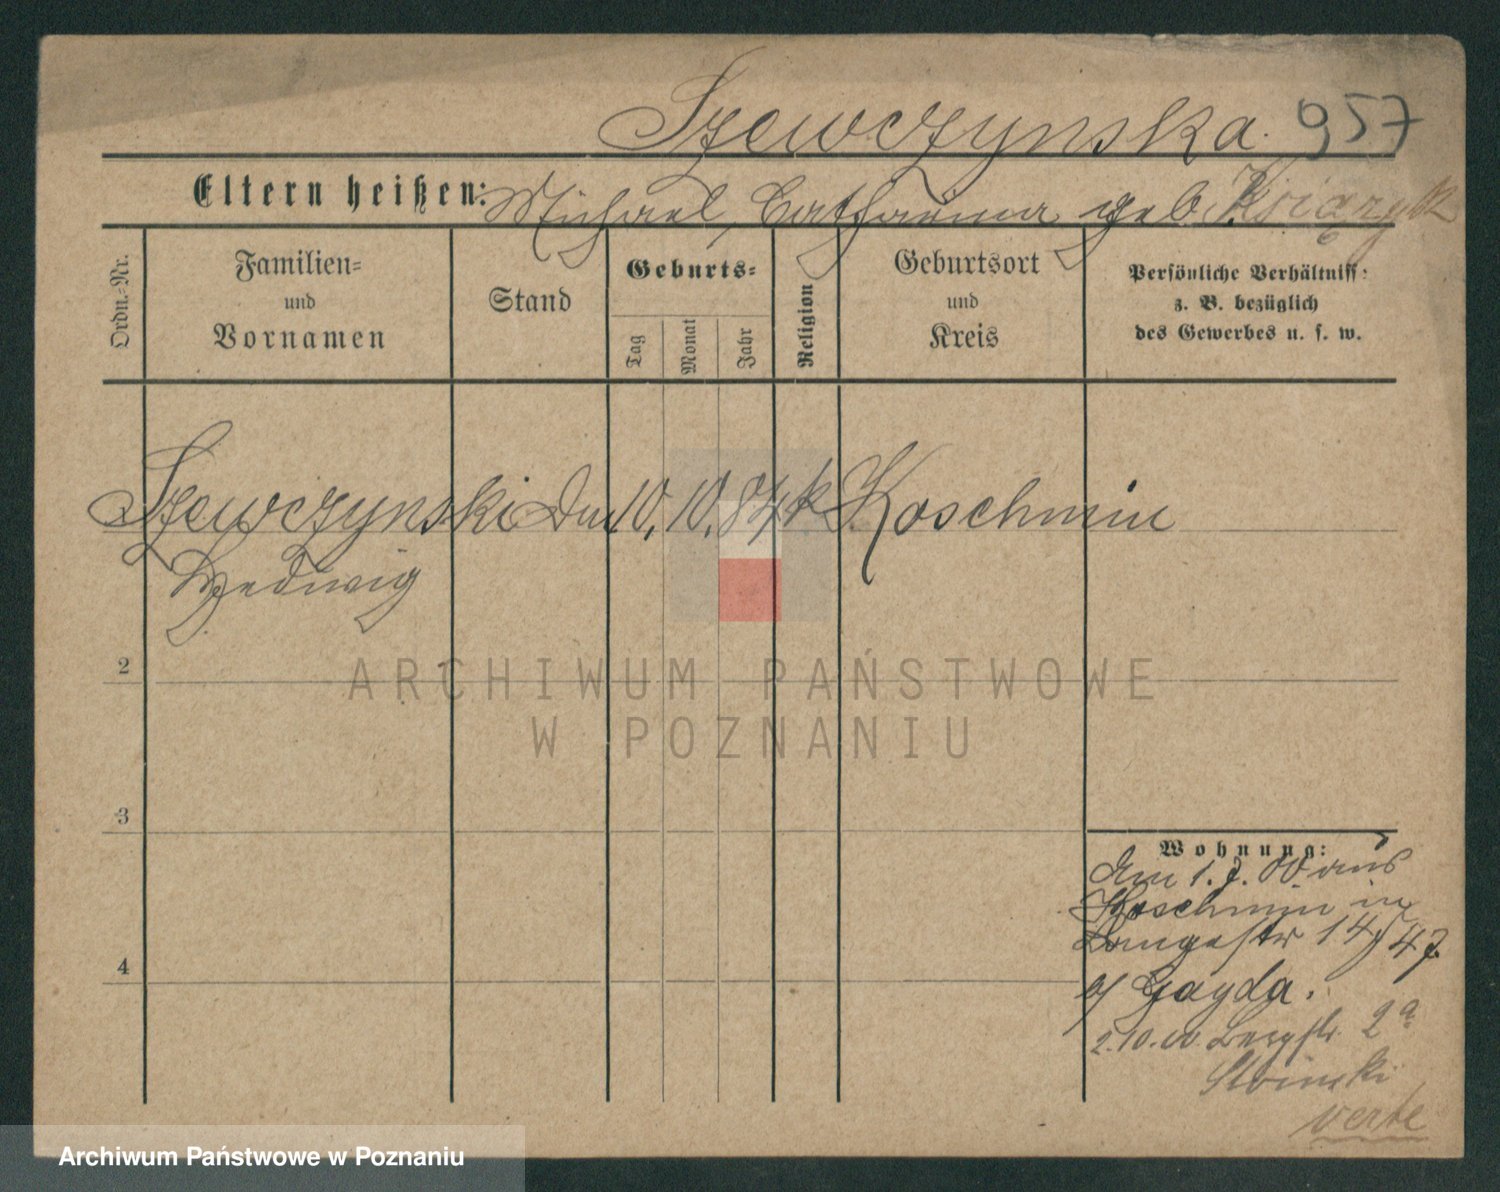 Szewczynska. 957
Eltern heißen: Michael, Catharina geb. Książyk
Ordn.-Nr.
Familien- und Vornamen
Stand
Geburts-
Tag
Monat
Jahr
Religion
Geburtsort und Kreis
Persönliche Verhältniss:
z. B. bezüglich
des Gewerbes u. s. w.
Szewczynski 10. 10. 84 k Koschmin
Hedwig
2
3
4
Wohnung:
Am 1. 7. 00 aus
Koschmin in
Langestr 14
b/ Gayda.
2.10.00. Bergstr. 2a
verte
ARCHIWUM PAŃSTWOWE
W POZNANIU
Archiwum Państwowe w Poznaniu